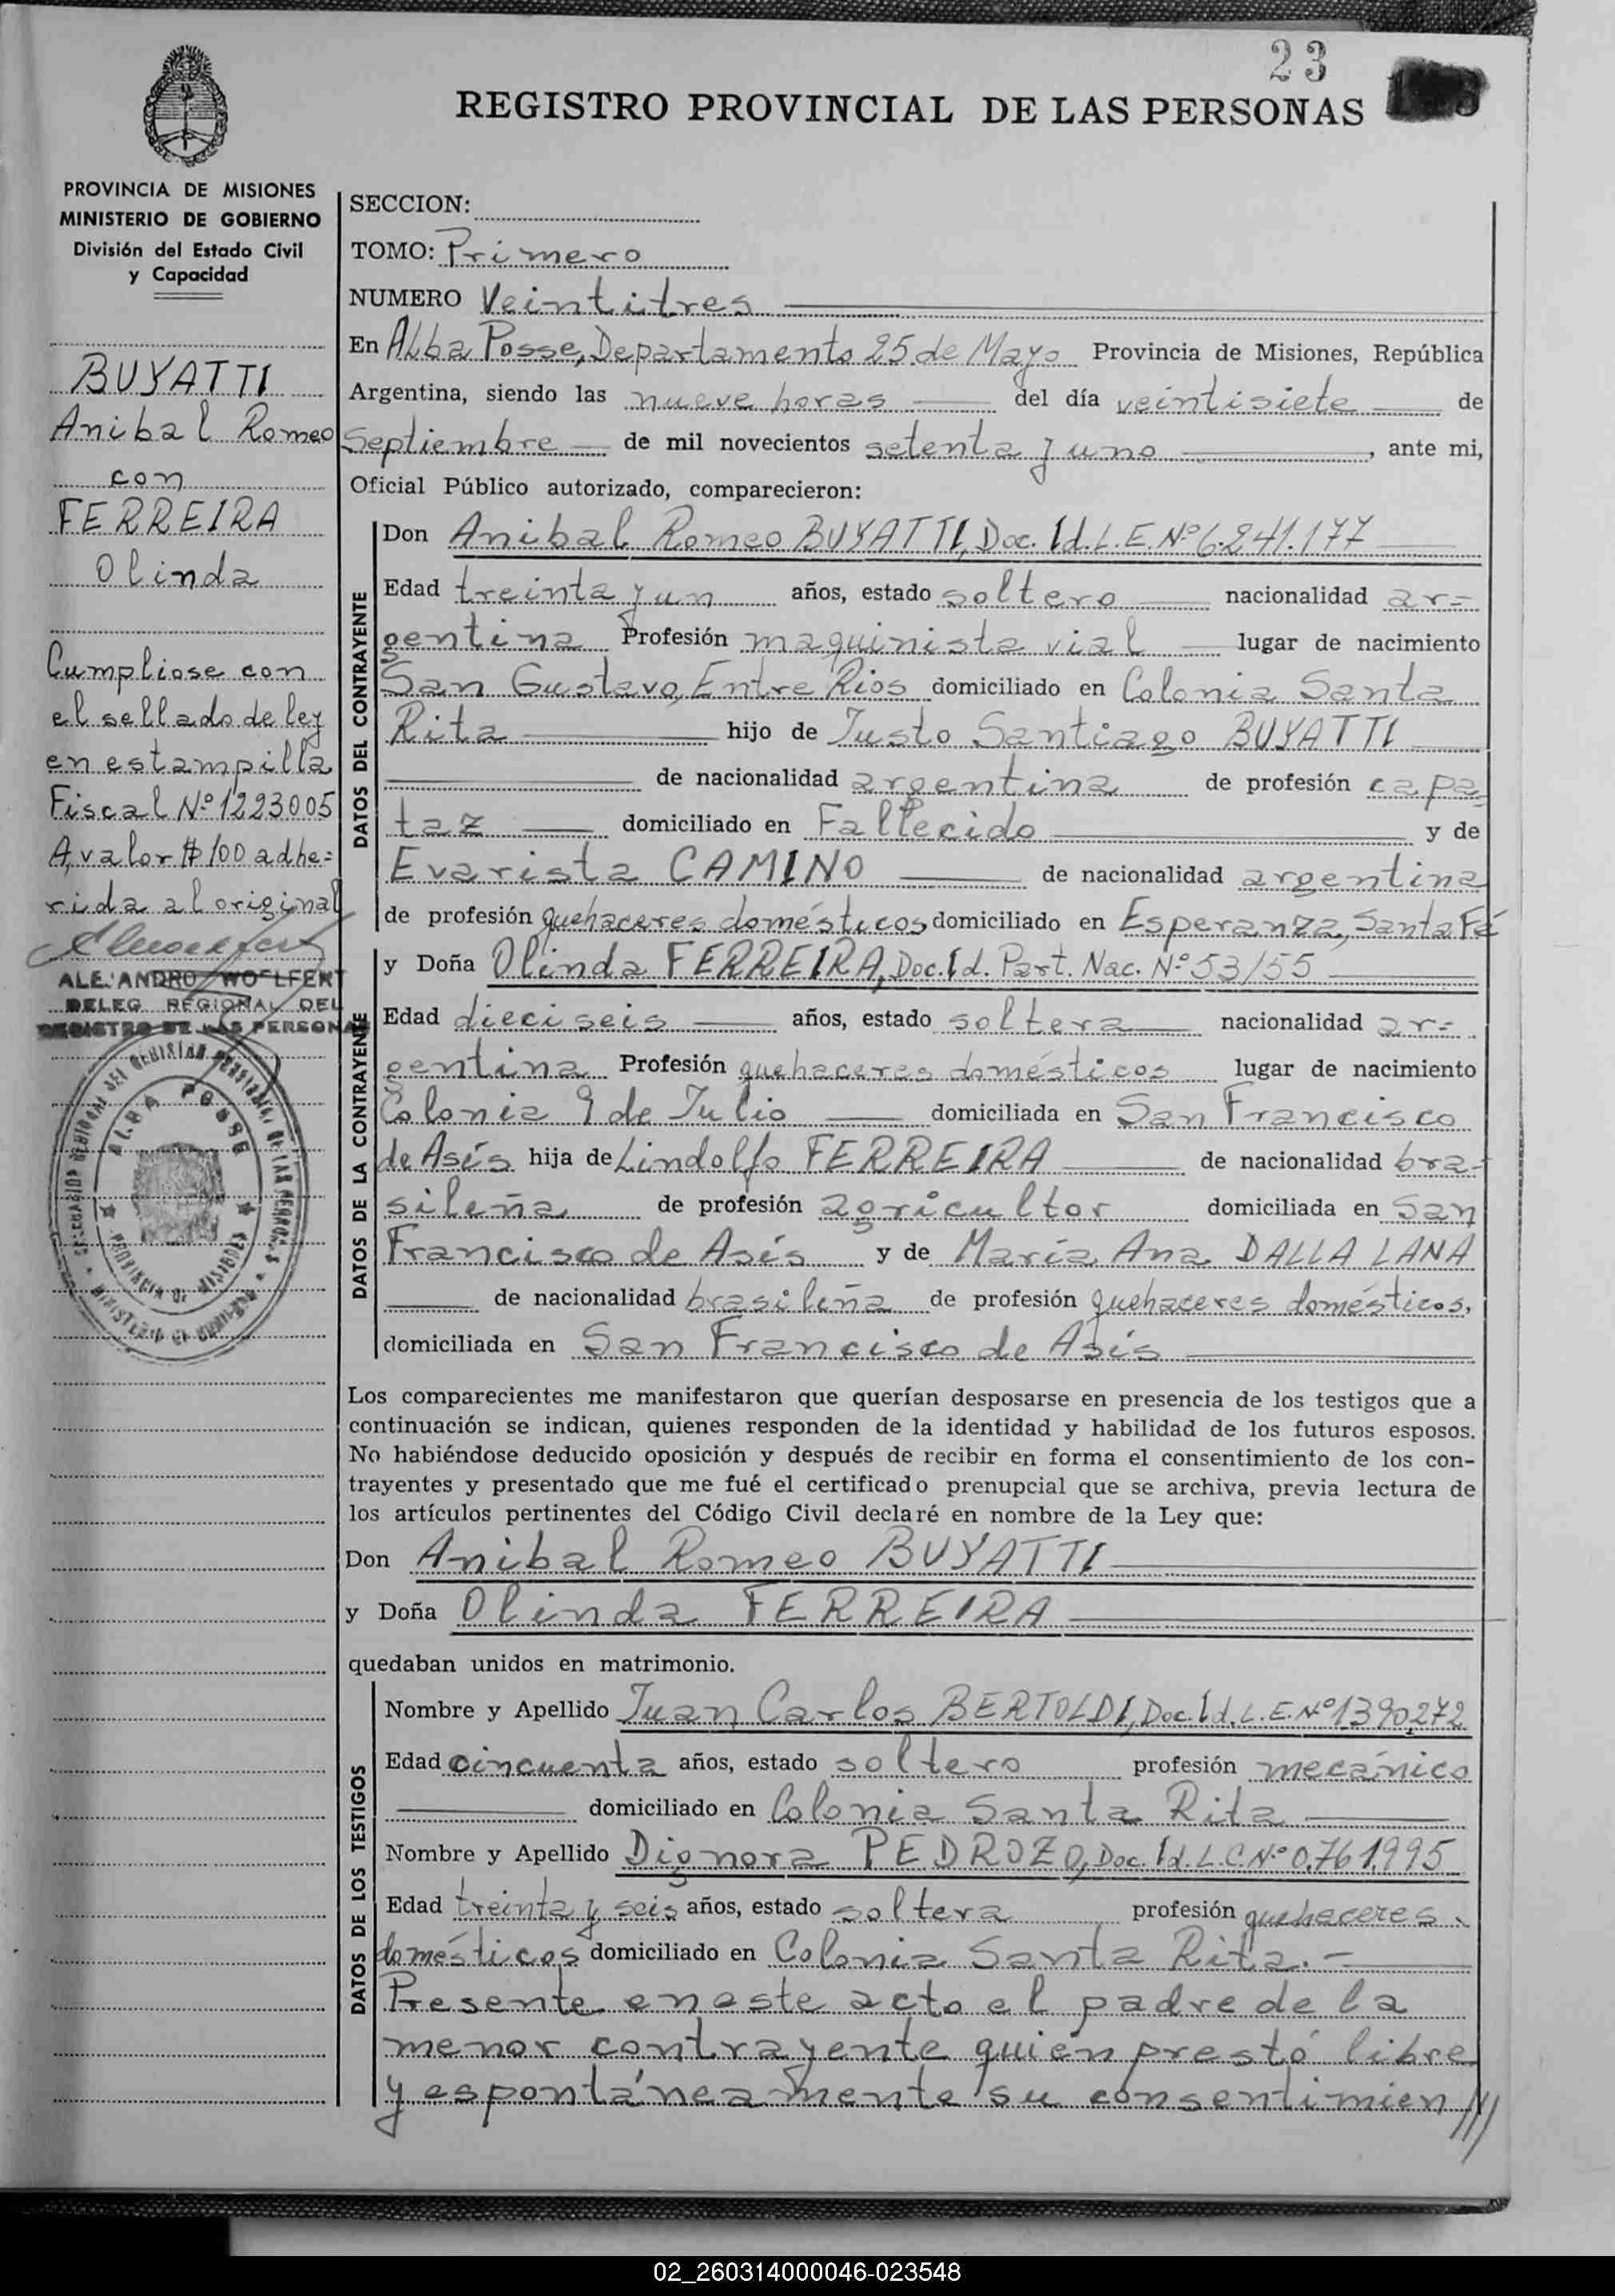 23
REGISTRO PROVINCIAL DE LAS PERSONAS
PROVINCIA DE MISIONES
MINISTERIO DE GOBIERNO
División del Estado Civil
y Capacidad
BUYATTI
Anibal Romeo
con
FERREIRA
Olinda
Cumpliose con
el sellado de ley
en estampilla
Fiscal Nº 1223005
A, valor $ 100 adhe=
rida al original
ALEJANDRO WOLFERT
DELEG. REGIONAL DEL
REGISTRO DE LAS PERSONAS
ALBA POSSE
PROVINCIA DE MISIONES
SECCION:
TOMO: Primero
NUMERO Veintitres
En Alba Posse, Departamento 25 de Mayo Provincia de Misiones, República
Argentina, siendo las nueve horas del día veintisiete de
Septiembre de mil novecientos setenta y uno , ante mi,
Oficial Público autorizado, comparecieron:
DATOS DEL CONTRAYENTE
Don Anibal Romeo BUYATTI, Doc. Id. L.E. Nº 6.241.177
Edad treinta y un años, estado soltero nacionalidad ar=
gentina Profesión maquinista vial lugar de nacimiento
San Gustavo, Entre Rios domiciliado en Colonia Santa
Rita hijo de Justo Santiago BUYATTI
de nacionalidad argentina de profesión capa
taz domiciliado en Fallecido y de
Evarista CAMINO de nacionalidad argentina
de profesión quehaceres domésticos domiciliado en Esperanza, Santa Fé
DATOS DE LA CONTRAYENTE
y Doña Olinda FERREIRA, Doc. Id. Part. Nac. Nº 53/55
Edad dieciseis años, estado soltera nacionalidad ar=
gentina Profesión quehaceres domésticos lugar de nacimiento
Colonia 9 de Julio domiciliada en San Francisco
de Asís hija de Lindolfo FERREIRA de nacionalidad bra-
sileña de profesión agricultor domiciliada en San
Francisco de Asís y de María Ana DALLA LANA
de nacionalidad brasileña de profesión quehaceres domésticos,
domiciliada en San Francisco de Asís
Los comparecientes me manifestaron que querían desposarse en presencia de los testigos que a
continuación se indican, quienes responden de la identidad y habilidad de los futuros esposos.
No habiéndose deducido oposición y después de recibir en forma el consentimiento de los con-
trayentes y presentado que me fué el certificado prenupcial que se archiva, previa lectura de
los artículos pertinentes del Código Civil declaré en nombre de la Ley que:
Don Anibal Romeo BUYATTI
y Doña Olinda FERREIRA
quedaban unidos en matrimonio.
DATOS DE LOS TESTIGOS
Nombre y Apellido Juan Carlos BERTOLDI, Doc. Id. L.E. Nº 1390272
Edad cincuenta años, estado soltero profesión mecánico
domiciliado en Colonia Santa Rita
Nombre y Apellido Dignora PEDROZO, Doc. Id. L.C. Nº 0.761.995
Edad treinta y seis años, estado soltera profesión quehaceres
domésticos domiciliado en Colonia Santa Rita.-
Presente en este acto el padre de la
menor contrayente quien prestó libre
y espontáneamente su consentimien///
02_260314000046-023548